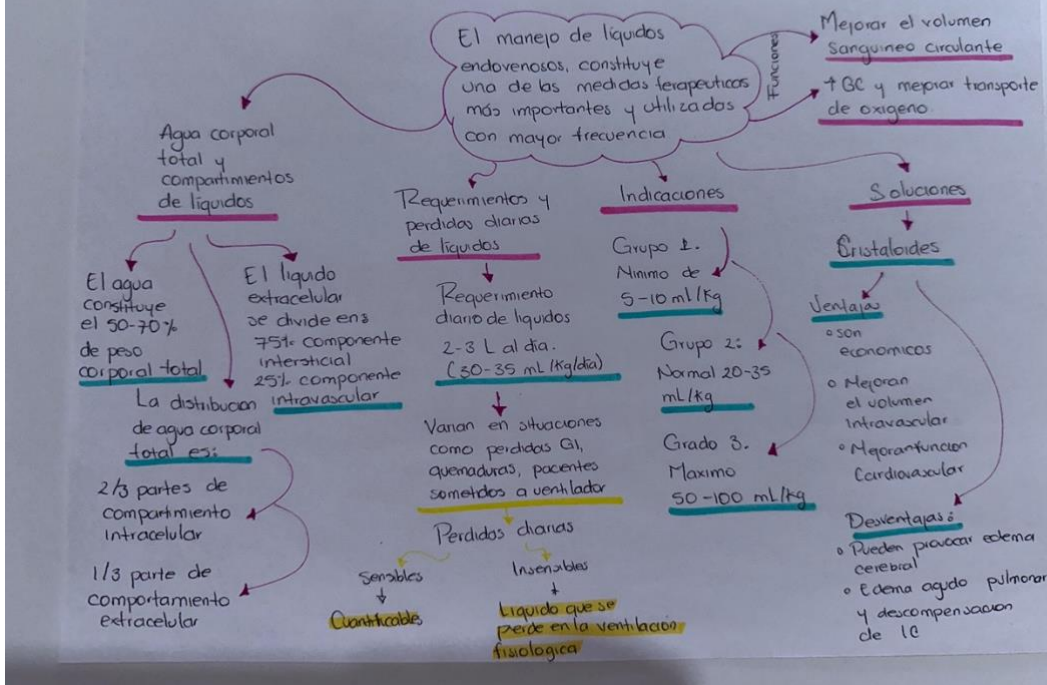 El manejo de liquidos
endovenosos, constituye
una de las medidas terapeuticas
más importantes y utilizadas
con mayor frecuencia
Funciones
Mejorar el volumen
Sanguineo circulante
↑ GC y mejorar transporte
de oxigeno.
Agua corporal
total y
compartimientos
de liquidos
El agua
constituye
el 50-70%
de peso
corporal total
El liquido
extracelular
se divide en:
75% componente
intersticial
25% componente
intravascular
La distribucion
de agua corporal
total es:
2/3 partes de
compartimiento
intracelular
1/3 parte de
comportamiento
extracelular
Requerimientos y
perdidas diarias
de liquidos
Requerimiento
diario de liquidos
2-3 L al dia.
(30-35 mL/Kg/dia)
Varian en situaciones
como perdidas GI,
quemaduras, pacientes
sometidos a ventilador
Perdidas diarias
Sensibles
Cuantificables
Insensibles
Liquido que se
pierde en la ventilación
fisiologica
Indicaciones
Grupo 1.
Minimo de
5-10 ml/Kg
Grupo 2:
Normal 20-35
mL/Kg
Grado 3.
Maximo
50-100 mL/Kg
Soluciones
Cristaloides
Ventajas
° son
economicos
° Mejoran
el volumen
intravascular
° Mejoran funcion
Cardiovascular
Desventajas:
° Pueden provocar edema
cerebral
° Edema agudo pulmonar
y descompensacion
de IC